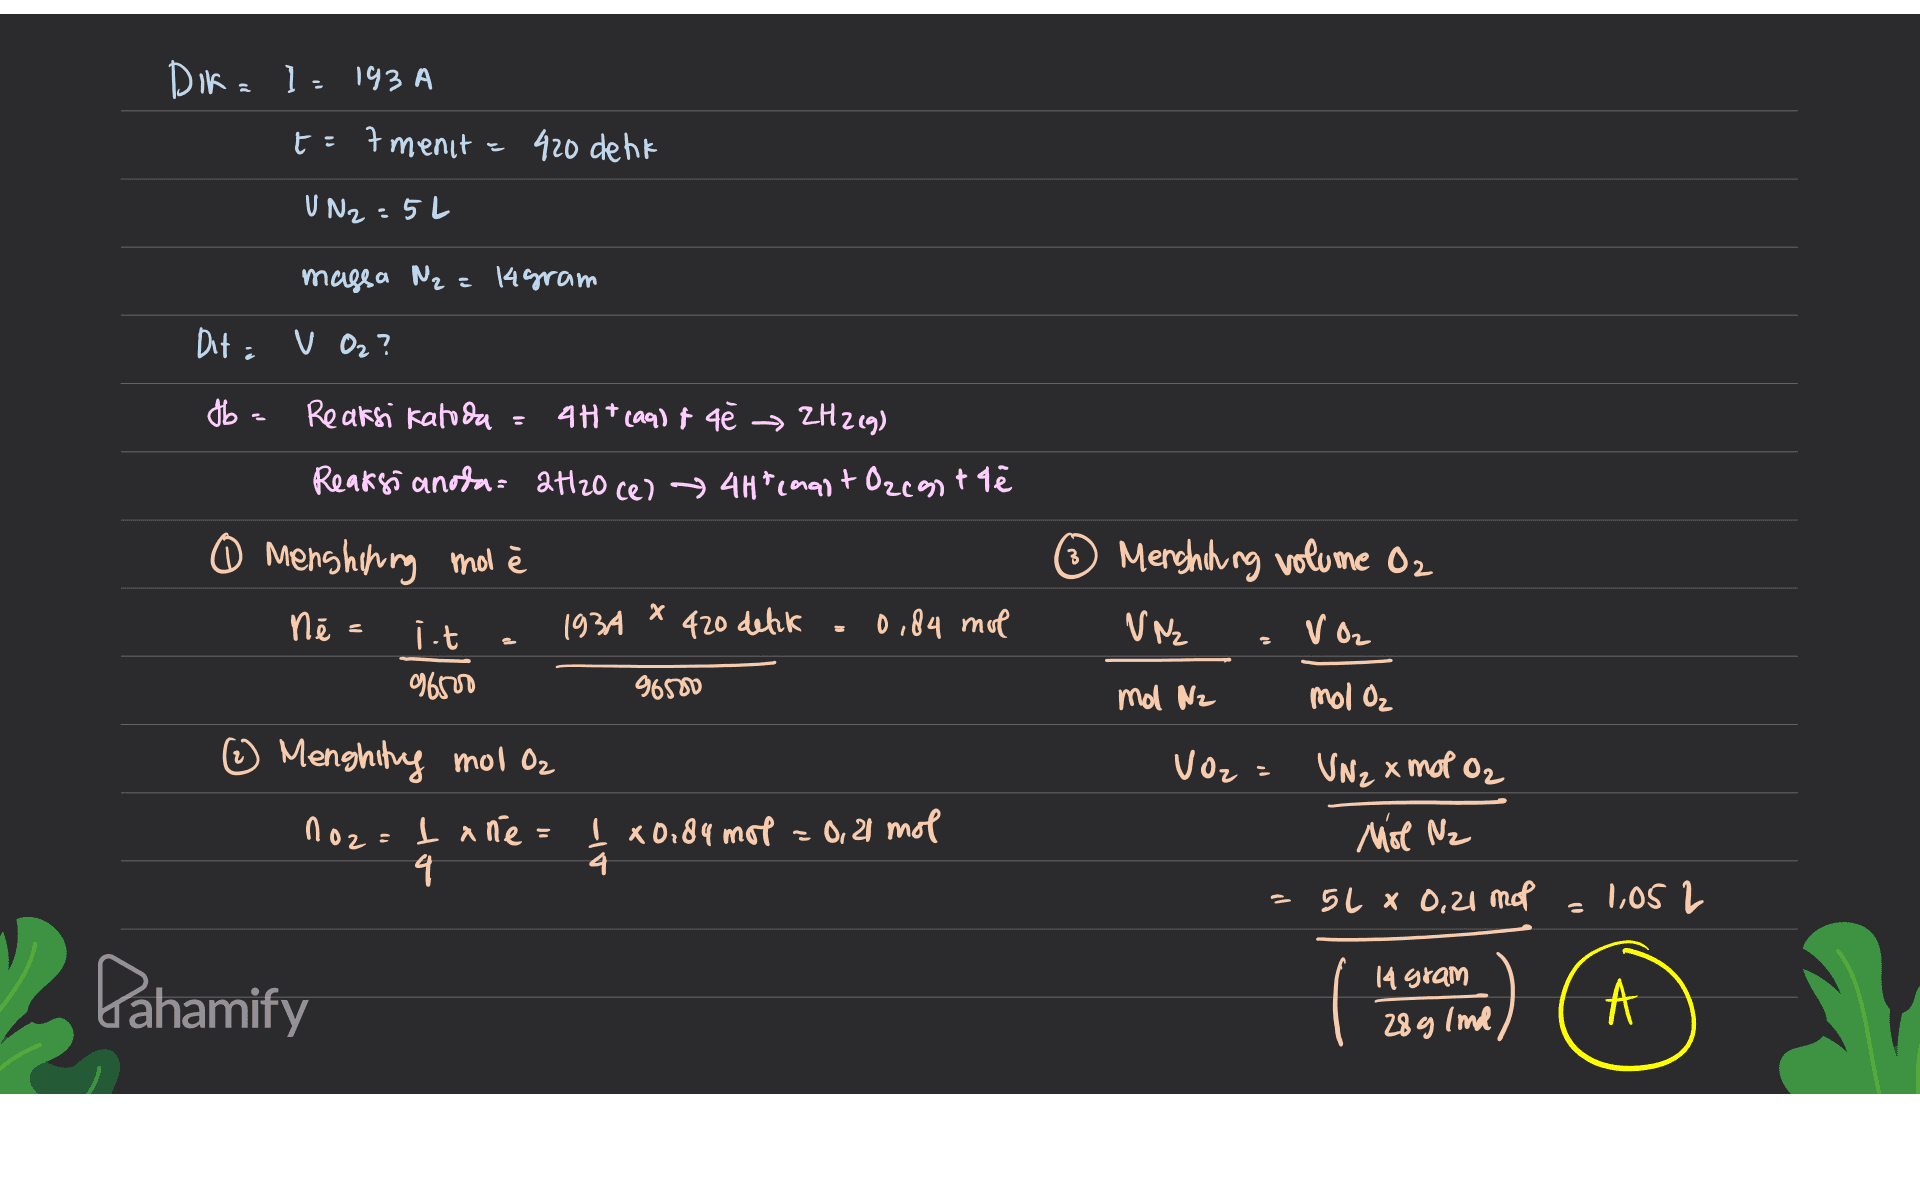 Dik = I = 193 A
t = 7 menit = 420 detik
V N2 = 5 L
massa N2 = 14 gram
Dit = V O2 ?
Jb = Reaksi katoda = 4H+(aq) + 4ē → 2H2(g)
Reaksi anoda = 2H2O (l) → 4H+(aq) + O2(g) + 4ē
① Menghitung mol ē
nē = i.t / 96500 = 193A × 420 detik / 96500 = 0,84 mol
② Menghitung mol O2
n O2 = 1/4 × nē = 1/4 × 0,84 mol = 0,21 mol
③ Menghitung volume O2
V N2 / mol N2 = V O2 / mol O2
V O2 = V N2 × mol O2 / Mol N2
= 5L × 0,21 mol / (14 gram / 28 g/mol) = 1,05 L
A
Pahamify